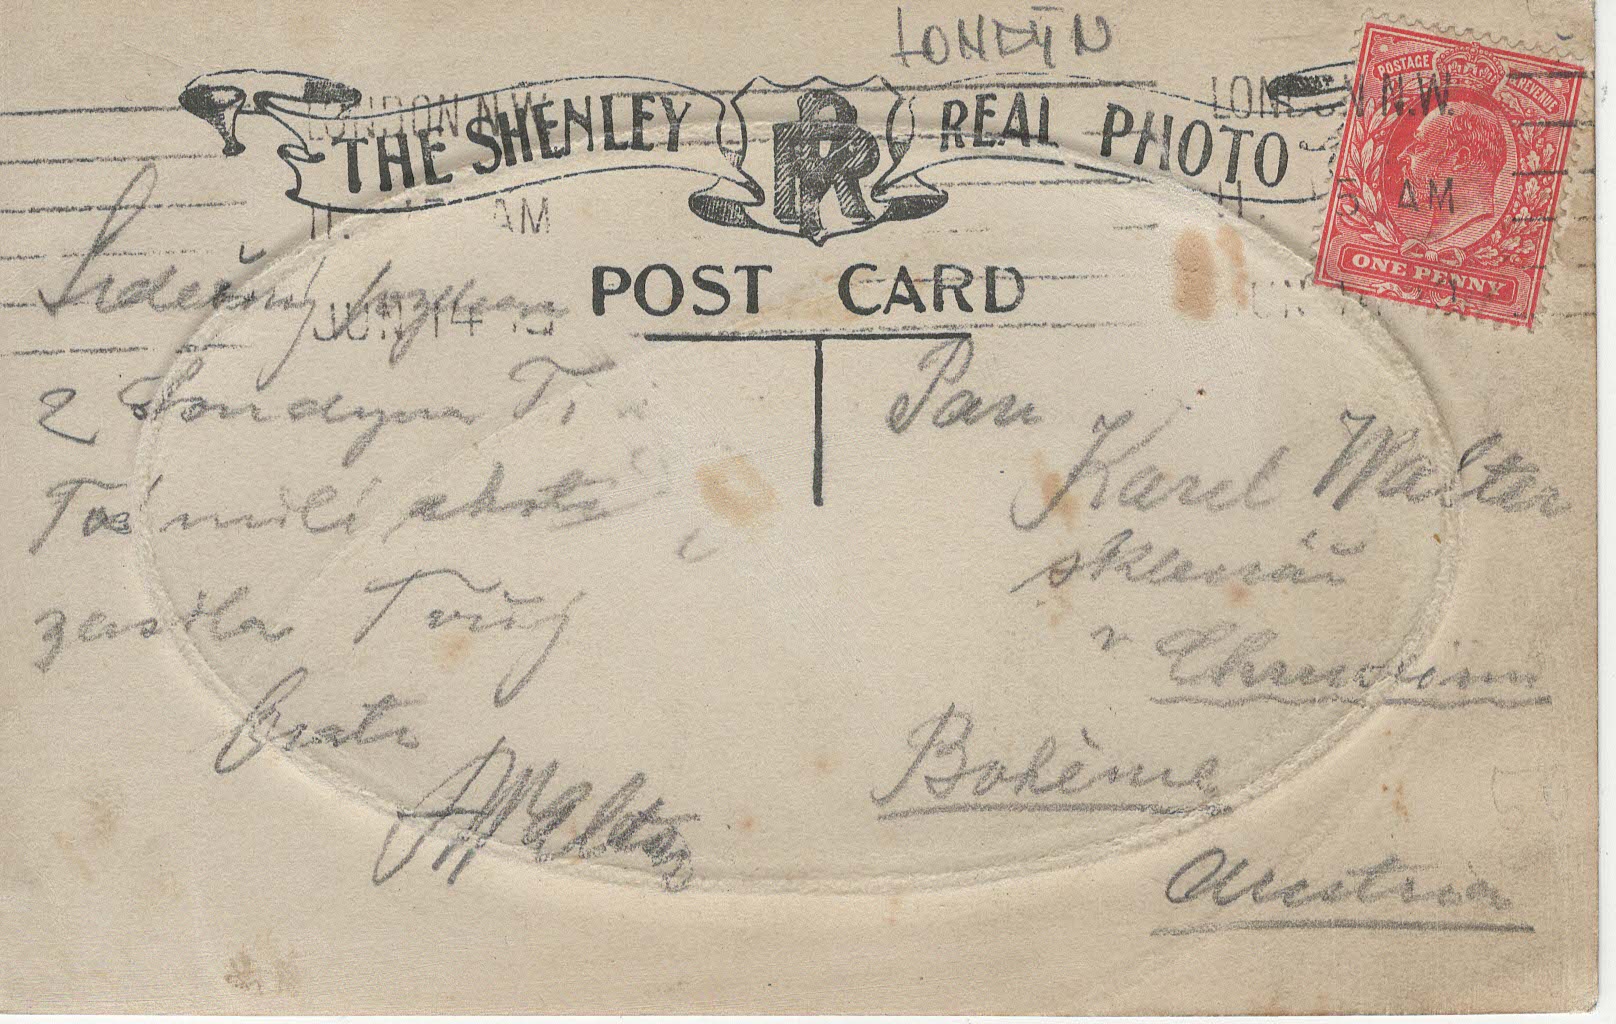 LONDÝN
THE SHENLEY RP REAL PHOTO
POST CARD
LONDON N.W.
11. 15 AM
JUN 14
LONDON N.W.
11. 5 AM
JUN 14
POSTAGE REVENUE
ONE PENNY
Srdečný pozdrav
z Londýna Ti i
Tvé milé choti
zasílá Tvůj
bratr
Walter
Pan
Karel Walter
sklenář
v Chrudimi
Bohême
Austria